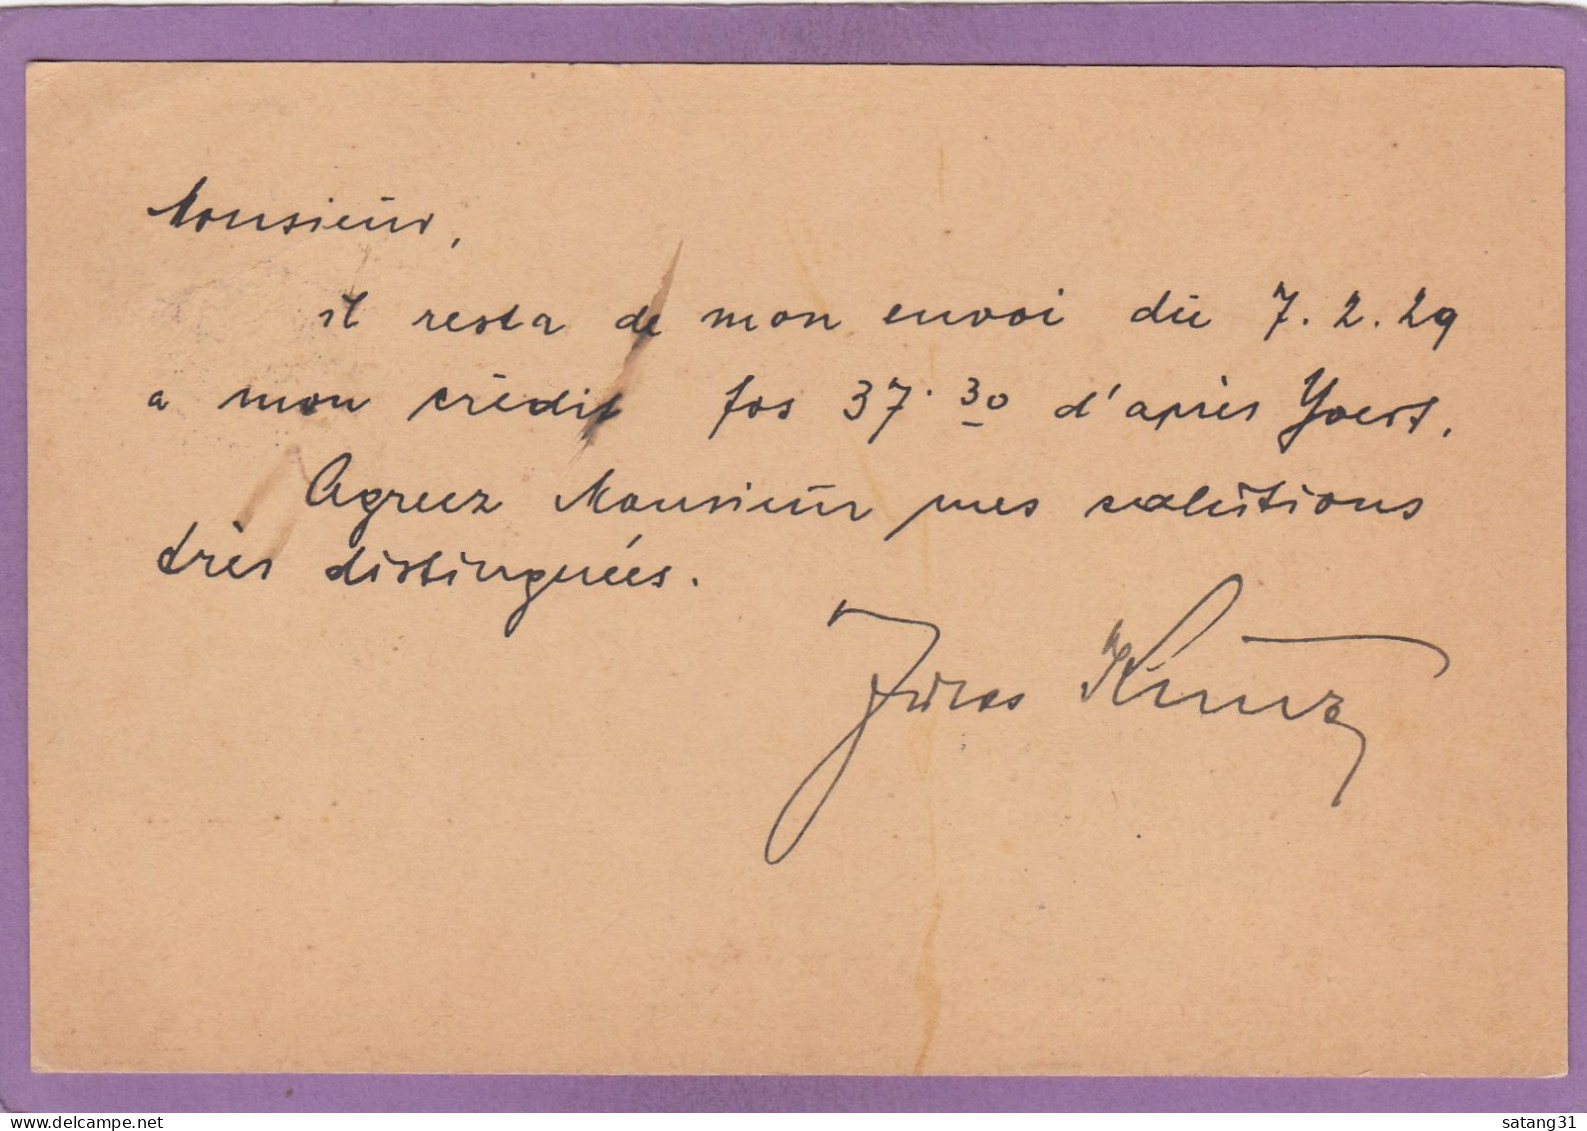 Monsieur,
il resta de mon envoi du 7.2.29
a mon crédit fos 37.30 d'après Yvert.
Agreez Monsieur mes salutions
très distinguées.
Kunz
www.delcampe.net
satang31